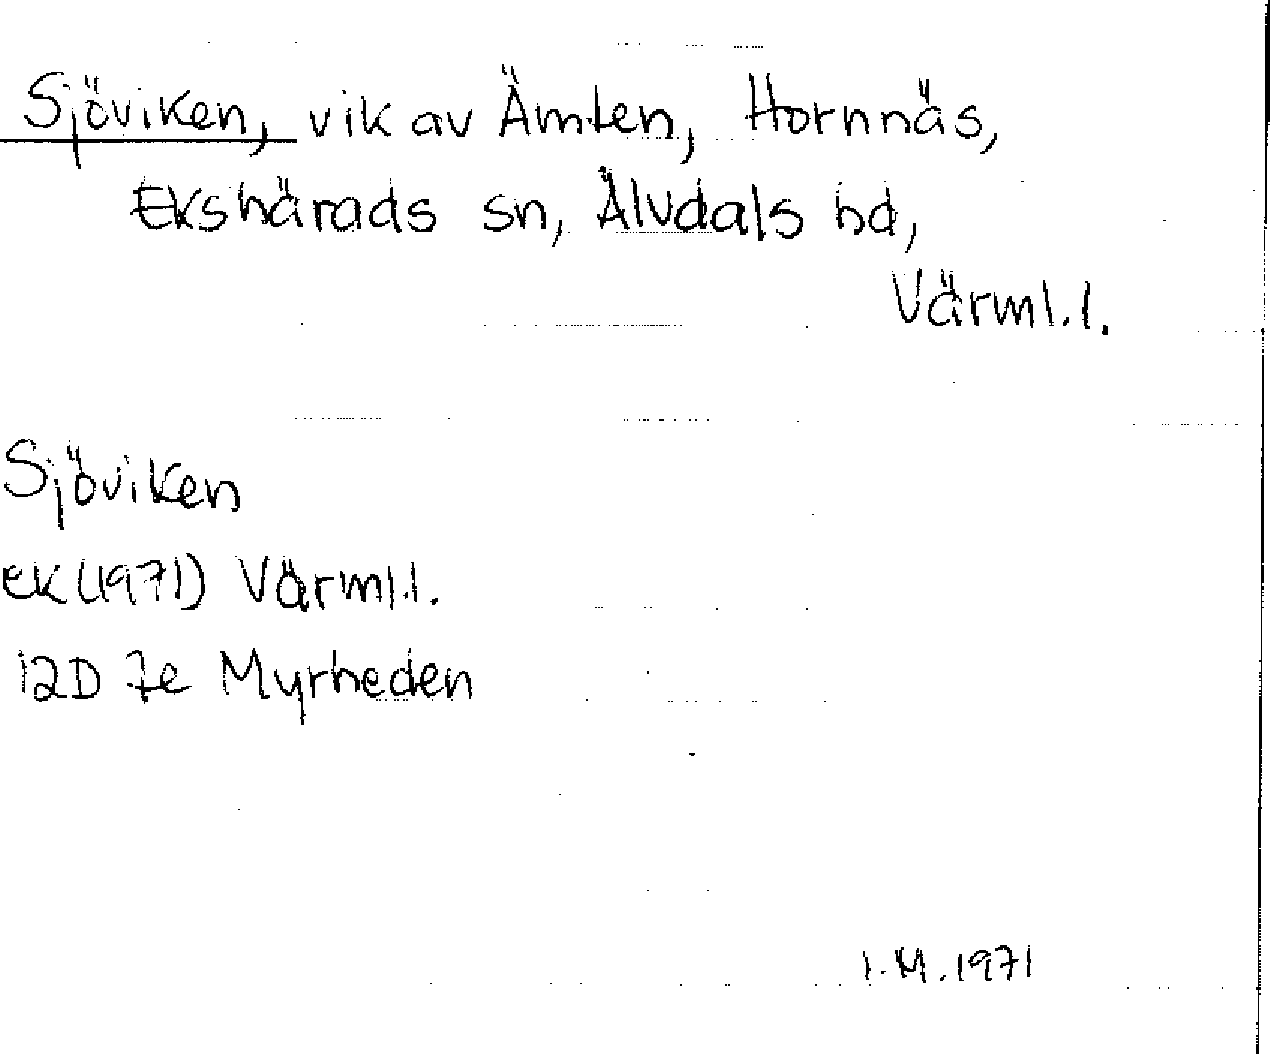 Sjöviken, vik av Ämten, Hornnäs,
Ekshärads sn, Älvdals hd,
Värml.l.
Sjöviken
ek (1971) Värml.l.
12D 7e Myrheden
I.M.1971